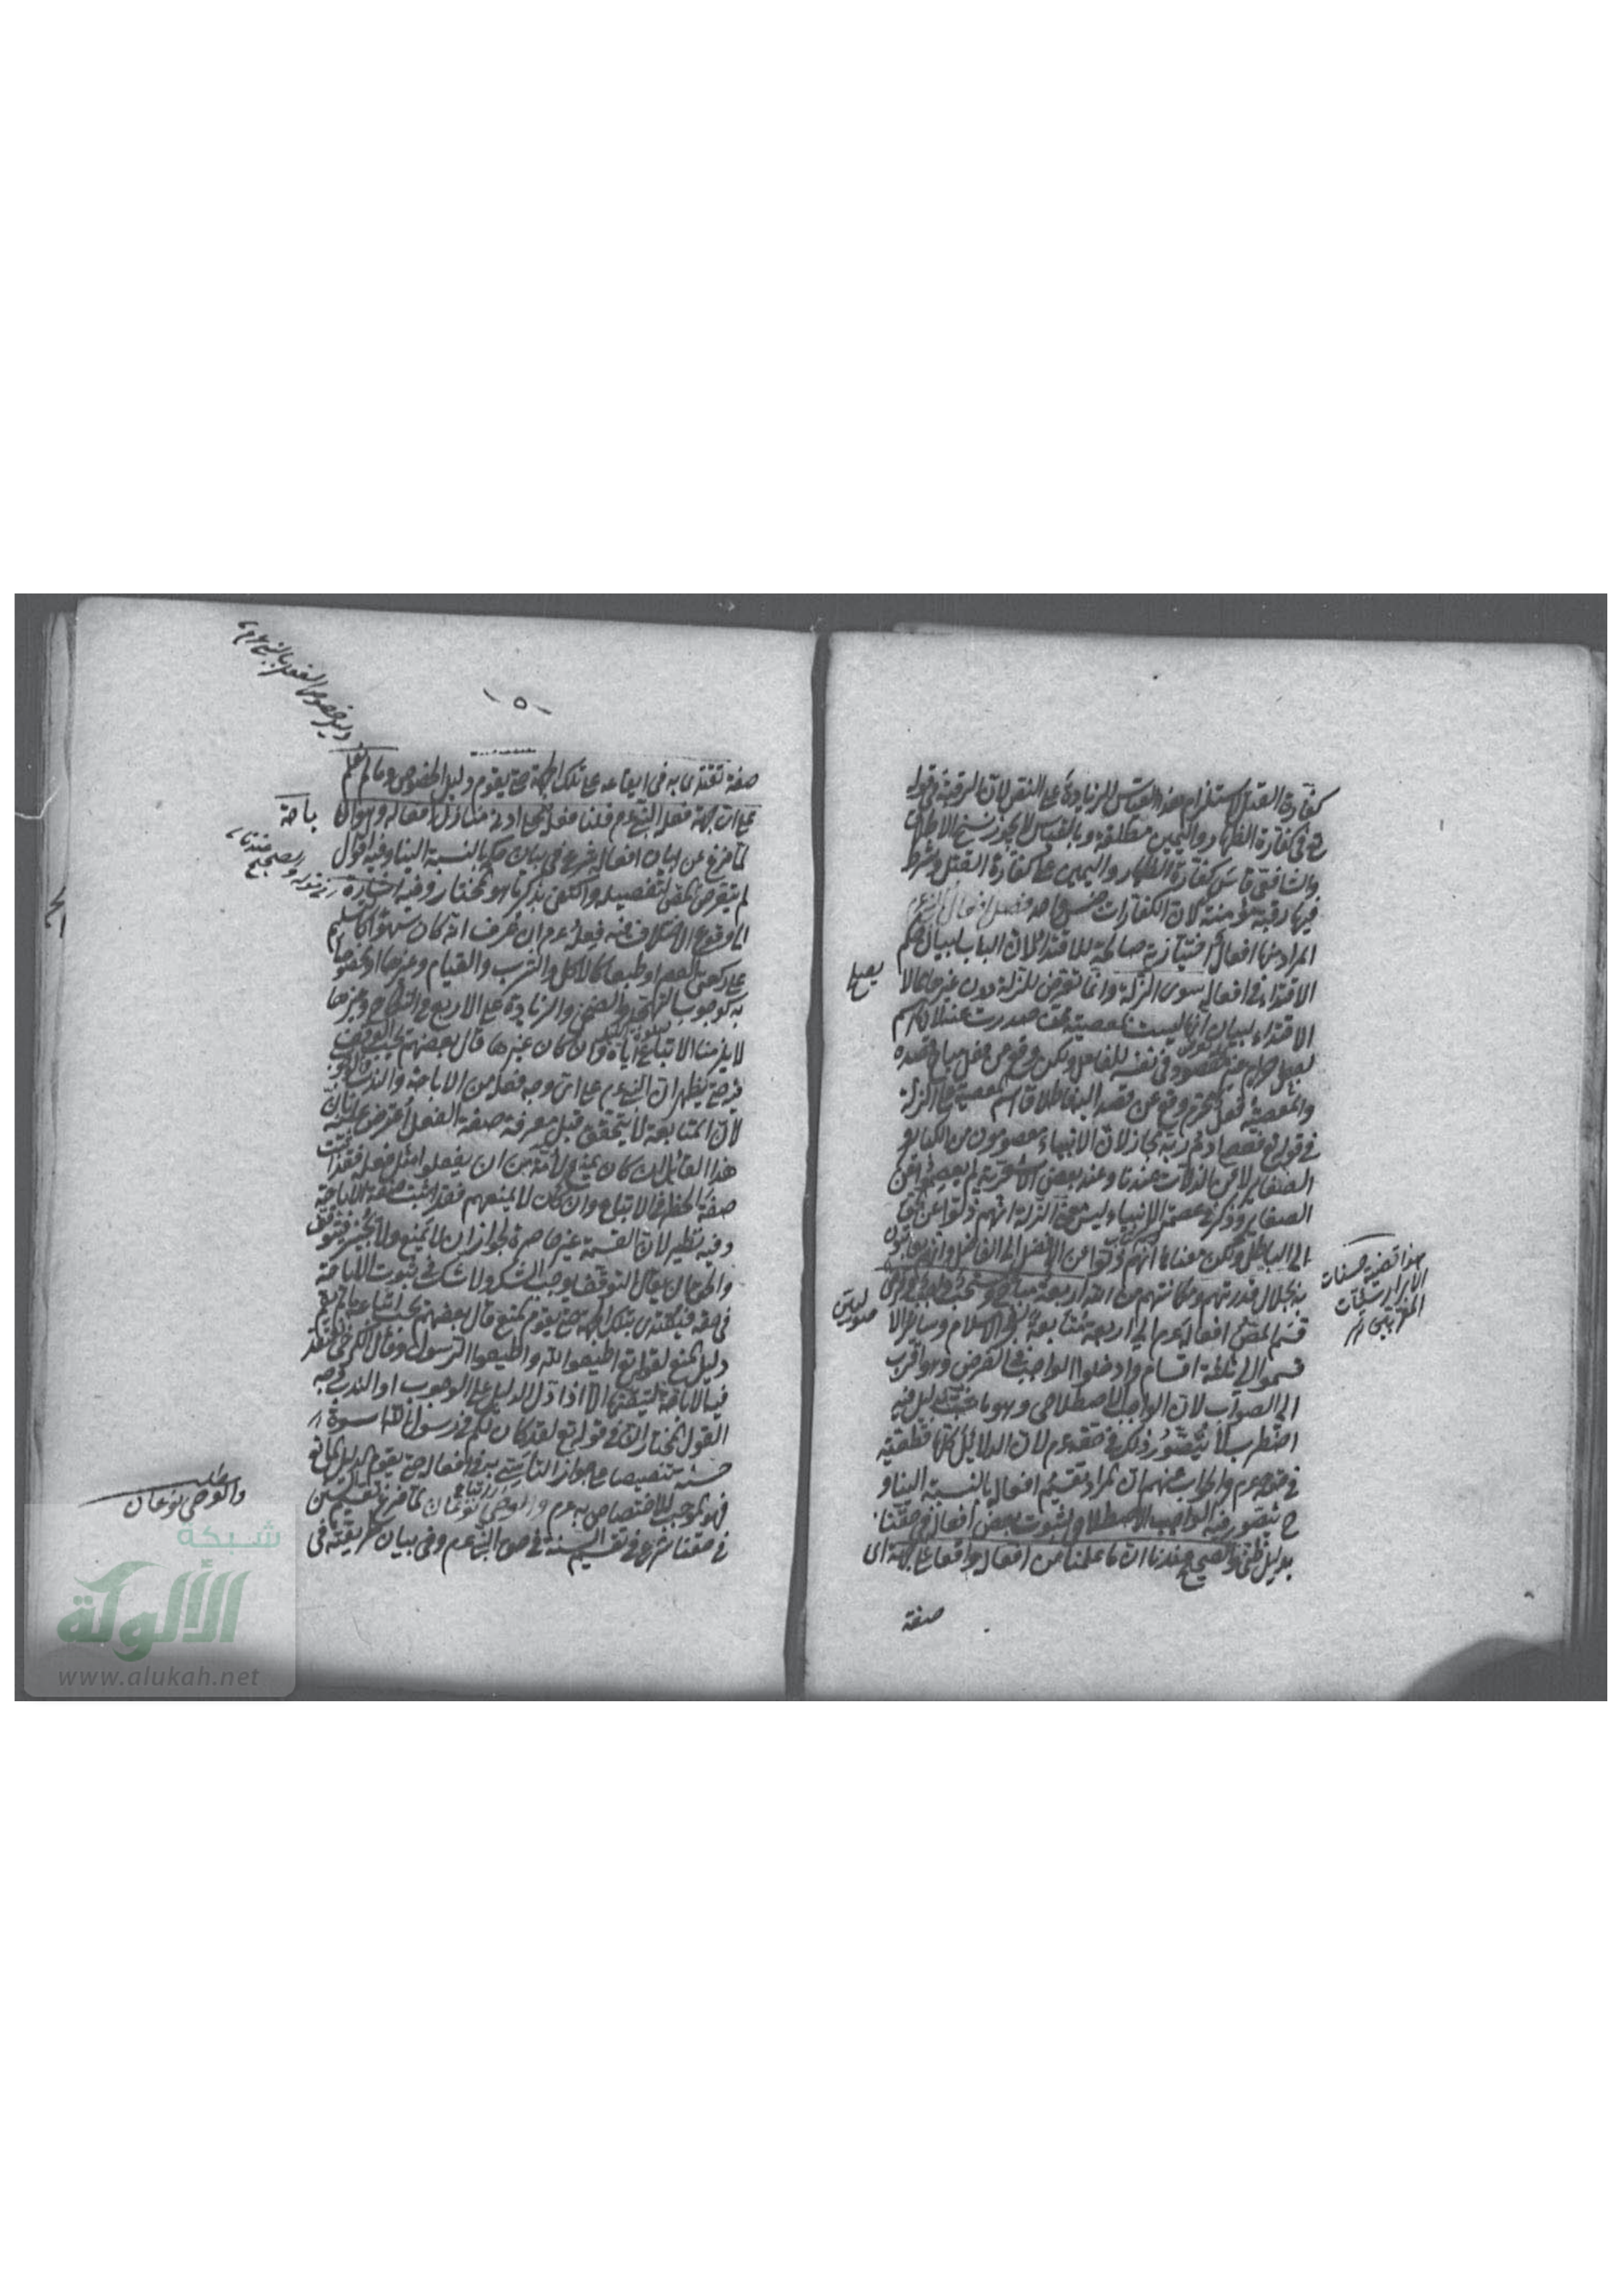 كفارة القتل لاستلزام هذا القياس للزيادة على النص لان الرقبة في قوله
تع في كفارة الظهار واليمين مطلقة وبالقياس لا يجوز نسخ الاطلاق
والشافعي قاس كفارة الظهار واليمين على كفارة القتل وشرط
فيها رقبة مؤمنة لان الكفارات جنس واحد فصل افعال النبي عم
المراد منها افعال اختيارية صالحة للاقتداء لان الباب لبيان حكم
الاقتداء في افعاله سوى الزلة وانما تعرض للزلة دون غيرها مما لا
يصلح
الاقتداء لبيان انها ليست بمعصية صدرت عنه لان اسم
لفعل حرام غير مقصود في نفسه للفاعل ولكن وقع عن فعل مباح قصده
والمعصية فعل محرم وقع عن قصد اليه فاطلاق اسم المعصية على الزلة
في قوله تع وعصى ادم ربه مجاز لان الانبياء معصومون من الكبائر
الصغاير لا من الزلات عندنا وعند بعض الاشعرية لم يعصموا عن
الصغاير وذكر في عصمة الانبياء ليس معنى الزلة انهم زلوا عن الحق
الى الباطل ولكن معناها انهم زلوا عن الافضل الى الفاضل وانهم يعاتبون
به لجلال قدرتهم ومكانتهم من الله اربعة مباح ومستحب وواجب وفرض
قسم المص افعاله عم الى اربعة متابعة لفخر الاسلام وسائر الا
صوليين
قسموا الى ثلثة اقسام وادخلوا الواجب في الفرض وهو اقرب
الى الصواب لان الواجب الاصطلاحي وهو ما ثبت بدليل فيه
اضطراب لا يتصور ذلك في حقه عم لان الدلائل كلها قطعية
في حقه عم والجواب عنه ان المراد تقسيم افعاله بالنسبة الينا و
ح يتصور فيه الواجب الاصطلاحي لثبوت بعض افعاله في حقنا
بدليل ظني والصحيح عندنا ان ما علمنا من افعاله واقعا على جهة اى
صفة
هذا قضية حسنات
الابرار سيئات
المقربين
دليل خصوص الفعل بالنبي عم
٥
صفة نقتدى به في ايقاعه على تلك الجهة حتى يقوم دليل الخصوص وما لم نعلم
على اى جهة فعله النبي عم قلنا فعله على ادنى منازل افعاله وهو الا
باحة
لما فرغ عن بيان افعاله شرع في بيان حكمها بالنسبة الينا وفيه اقوال
لم يتعرض المص لتفصيله واكتفى بذكر ما هو المختار وفيه اشارة
الى وقوع الاختلاف فيه فعله عم ان عرف انه كان سهوا كالتسليم
على ركعتي العصر او طبعا كالاكل والشرب والقيام وغيرها او مخصوصا
به كوجوب التهجد والضحى والزيادة على الاربع في النكاح وغيرها
لا يلزمنا الاتباع اياه وان كان غيرها قال بعضهم يجب التوقف
فيه حتى يظهر ان النبي عم على اى وجه فعله من الاباحة والندب والوجوب
لان المتابعة لا يتحقق قبل معرفة صفة الفعل اعترض عليه بان
هذا القائل ان كان يمنع الامة من ان يفعلوا مثل فعله فقد اثبت
صفة الحظر في الاتباع وان كان لا يمنعهم فقد اثبت صفة الاباحة
وفيه نظر لان القسمة غير حاصرة لجواز ان لا يمنع ولا يجيز فيتوقف
والجواب ان يقال التوقف يوجب الشك ولا شك في ثبوت الاباحة
في حقه فيقتدى بتلك الجهة حتى يقوم المنع قال بعضهم يجب اتباعه ما لم يقم
دليل المنع لقوله تع اطيعوا الله واطيعوا الرسول وقال الكرخي نعتقد
فيه الاباحة لتيقنها الا اذا دل الدليل على الوجوب او الندب وجه
القول المختار ان في قوله تع لقد كان لكم في رسول الله اسوة
حسنة تنصيصا على جواز التأسي به في افعاله حتى يقوم الدليل المانع
فهو الموجب للاختصاص به عم والوحي نوعان لما فرغ تقسيم السنن
في حقنا شرع في تقسيم السنة في حق النبي عم وفي بيان طريقته في
مطلب
والوحي نوعان
شبكة
الألوكة
www.alukah.net